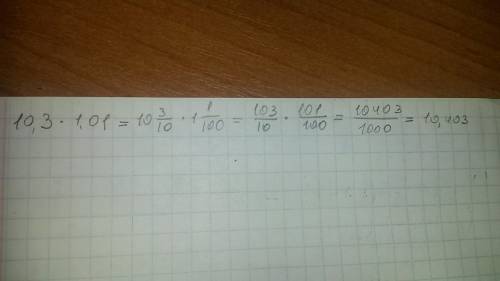 10,3 · 1,01 = 10 3/10 · 1 1/100 = 103/10 · 101/100 = 10403/1000 = 10,403